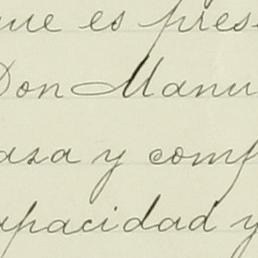 que es pres
Don Manu
aza y comp
apacidad y